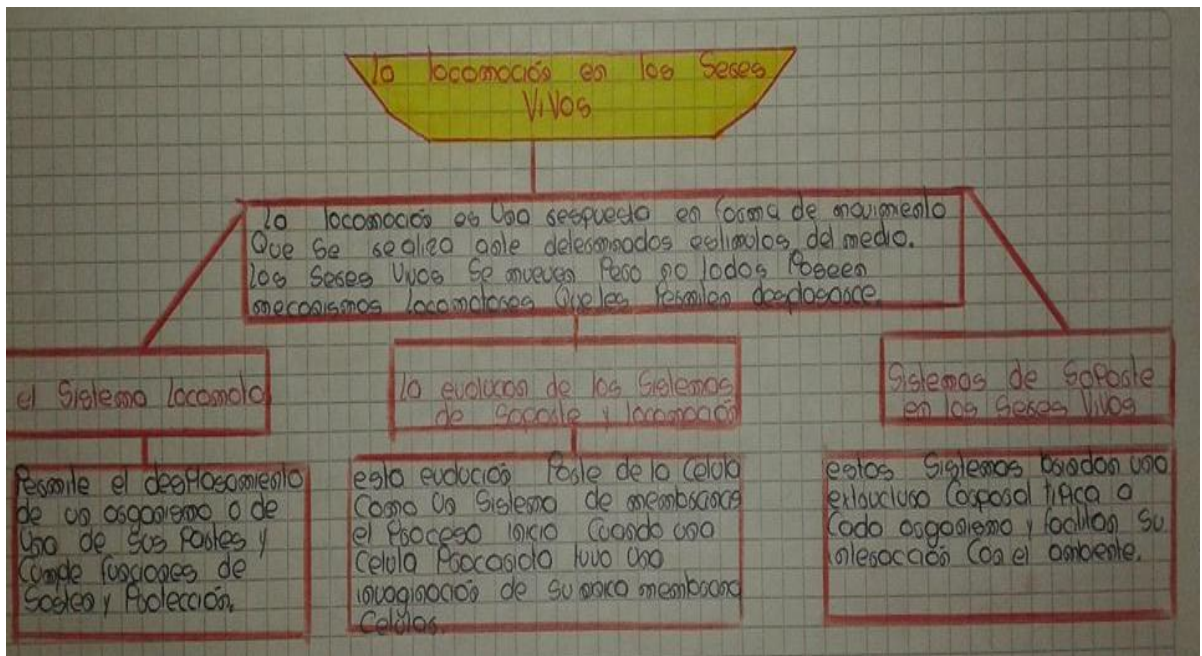 la locomoción en los Seres
Vivos
la locomoción es Una respuesta en forma de movimiento
Que Se realiza ante determinados estimulos del medio.
los Seres Vivos Se mueven Pero no todos Poseen
mecanismos locomotores Que les Permiten desplasarce.
el Sistema locomoto
Permite el desplasamiento
de un organismo o de
Una de Sus Partes y
cumple funciones de
Sosten y Protección.
la evolucion de los Sistemas
de Soporte y locomoción
esta evolución Parte de la Celula
Como Un Sistema de membranas
el Proceso inicio Cuando una
Celula Procariota tuvo Una
invaginación de Su unica membrana
Celular.
Sistemas de Soporte
en los Seres Vivos
estos Sistemas brindan una
Corporal tipica a
Cada organismo y facilitan Su
interacción Con el ambiente.